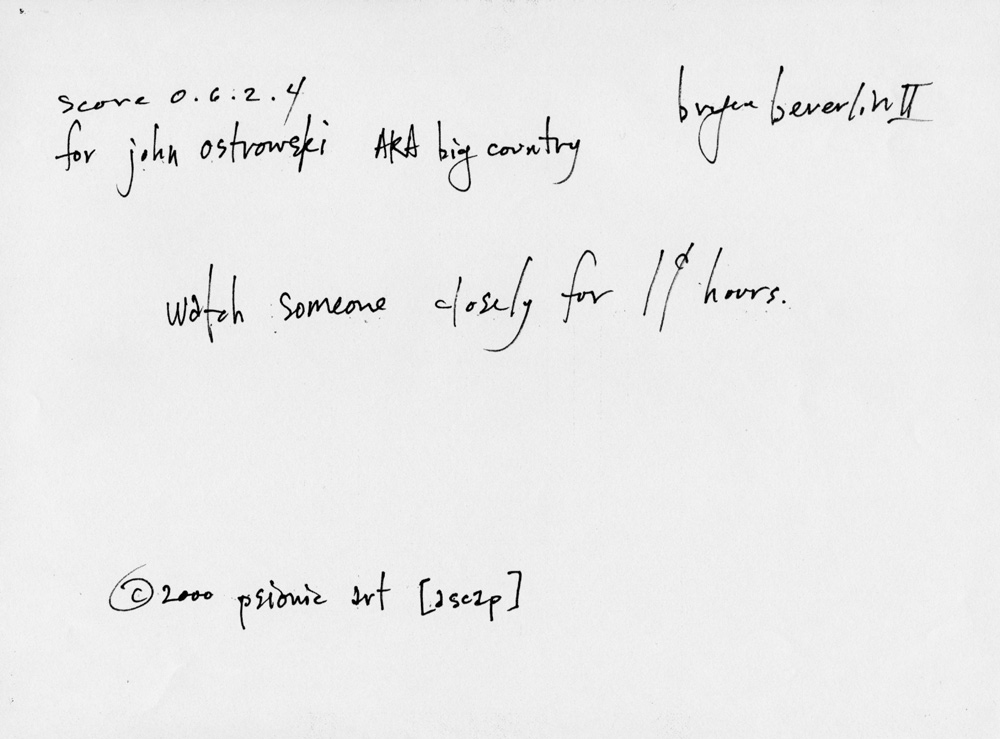 score 0.6.2.4
for john ostrowski AKA big country
beverlin II
watch someone closely for hours.
© 2000 psionic art [ascap]